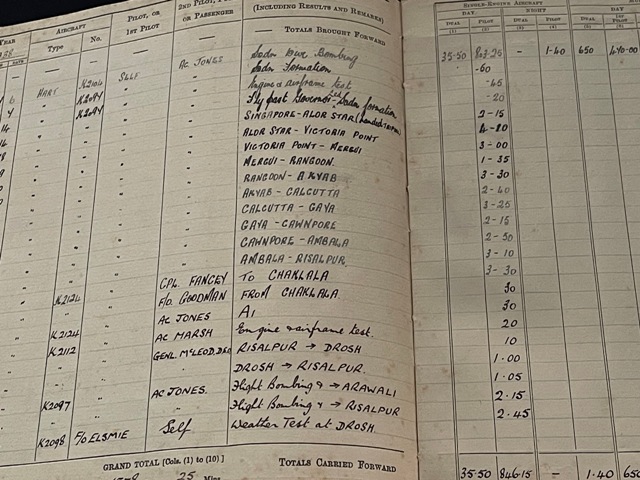 YEAR AIRCRAFT PILOT, OR 2ND PILOT, (INCLUDING RESULTS AND REMARKS) SINGLE-ENGINE AIRCRAFT
Type No. 1ST PILOT OR PASSENGER DAY NIGHT
DATE DUAL PILOT DUAL PILOT DUAL 1ST PILOT
(1) (2) (3) (4) (5) (6)
— — — TOTALS BROUGHT FORWARD 35·50 - 1·40 650
HART K2104 SELF AC JONES Sqdn Bombing
" " " " Sqdn Formation
" " " Engine & airframe test -45
6 " K2094 " " Fly past Governor - Sqdn formation -20
4 " K2094 " " SINGAPORE-ALOR STAR 2-15
14 " " " " ALOR STAR - VICTORIA POINT
" " " " VICTORIA POINT - MERGUI 3-00
" " " " MERGUI - RANGOON. 1-35
" " " " RANGOON - AKYAB 3-30
" " " " AKYAB - CALCUTTA 2-40
" " " " CALCUTTA - GAYA 3-25
" " " " GAYA - CAWNPORE 2-15
" " " " CAWNPORE - AMBALA 2-50
" " " " AMBALA - RISALPUR. 3-10
" " " CPL. FANCEY TO CHAKLALA 3-30
" K2124 " F/O. GOODMAN FROM CHAKLALA 30
" " " AC JONES A1 30
" K2124 " AC MARSH Engine & airframe test. 20
" K2112 " GENL. McLEOD, D.S.O RISALPUR → DROSH 10
" " " DROSH → RISALPUR. 1·00
" " " AC JONES. Flight Bombing & → ARAWALI 1·05
" K2097 " " Flight Bombing & → RISALPUR 2·15
" K2098 F/O ELSMIE Self Weather Test at DROSH. 2·45
GRAND TOTAL [Cols. (1) to (10)] TOTALS CARRIED FORWARD 35·50 846·15 — 1·40 650
25 Mins.